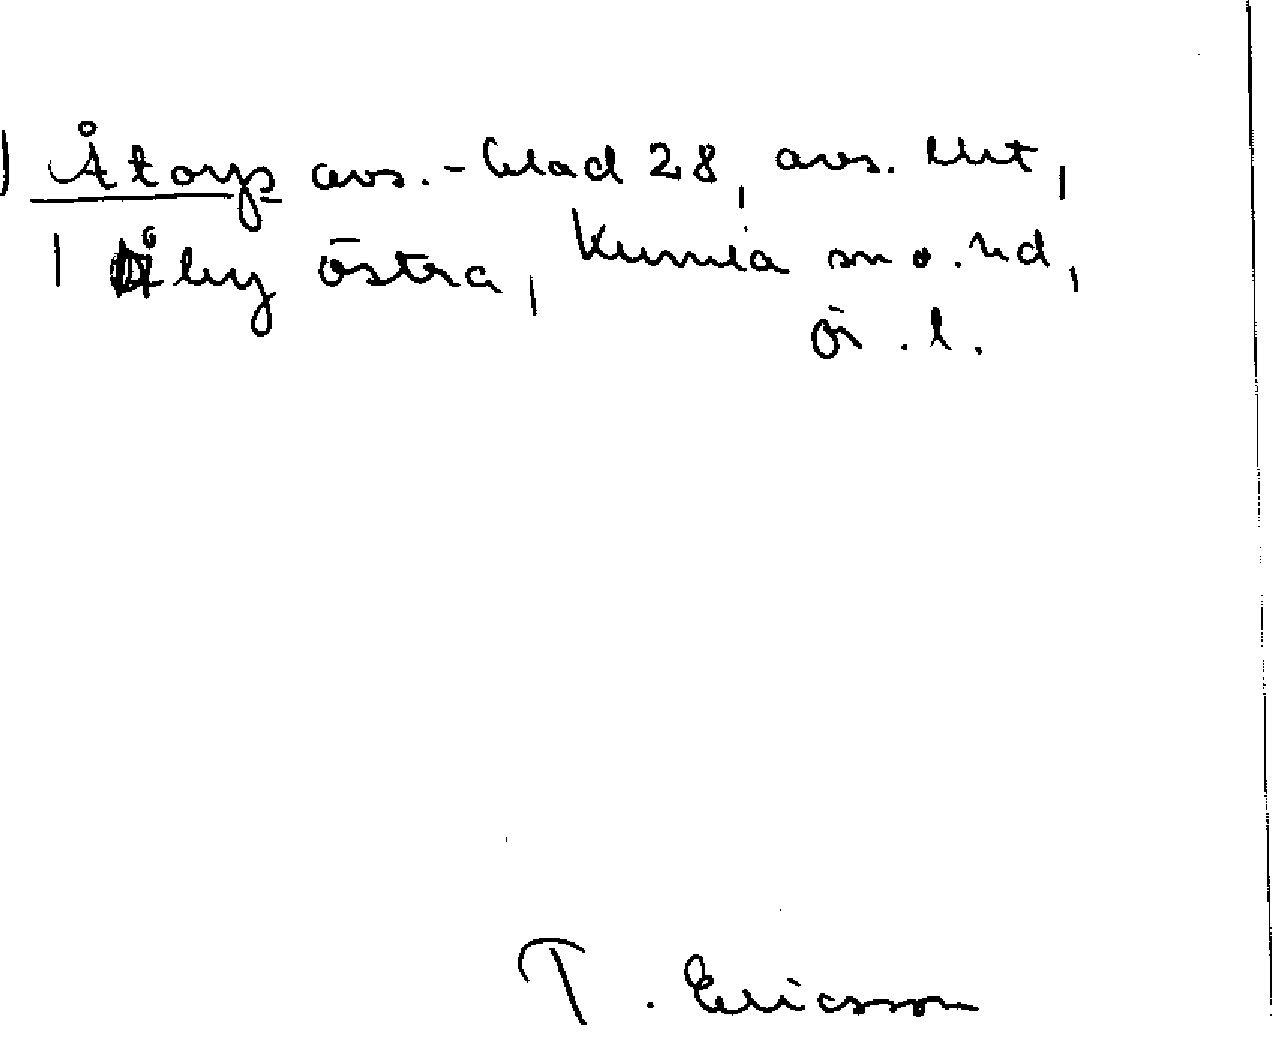 Åtorps avs.-blad 28, avs. till,
Åby östra, Kumla sn o. hd,
Ör. l.
T. Ericsson